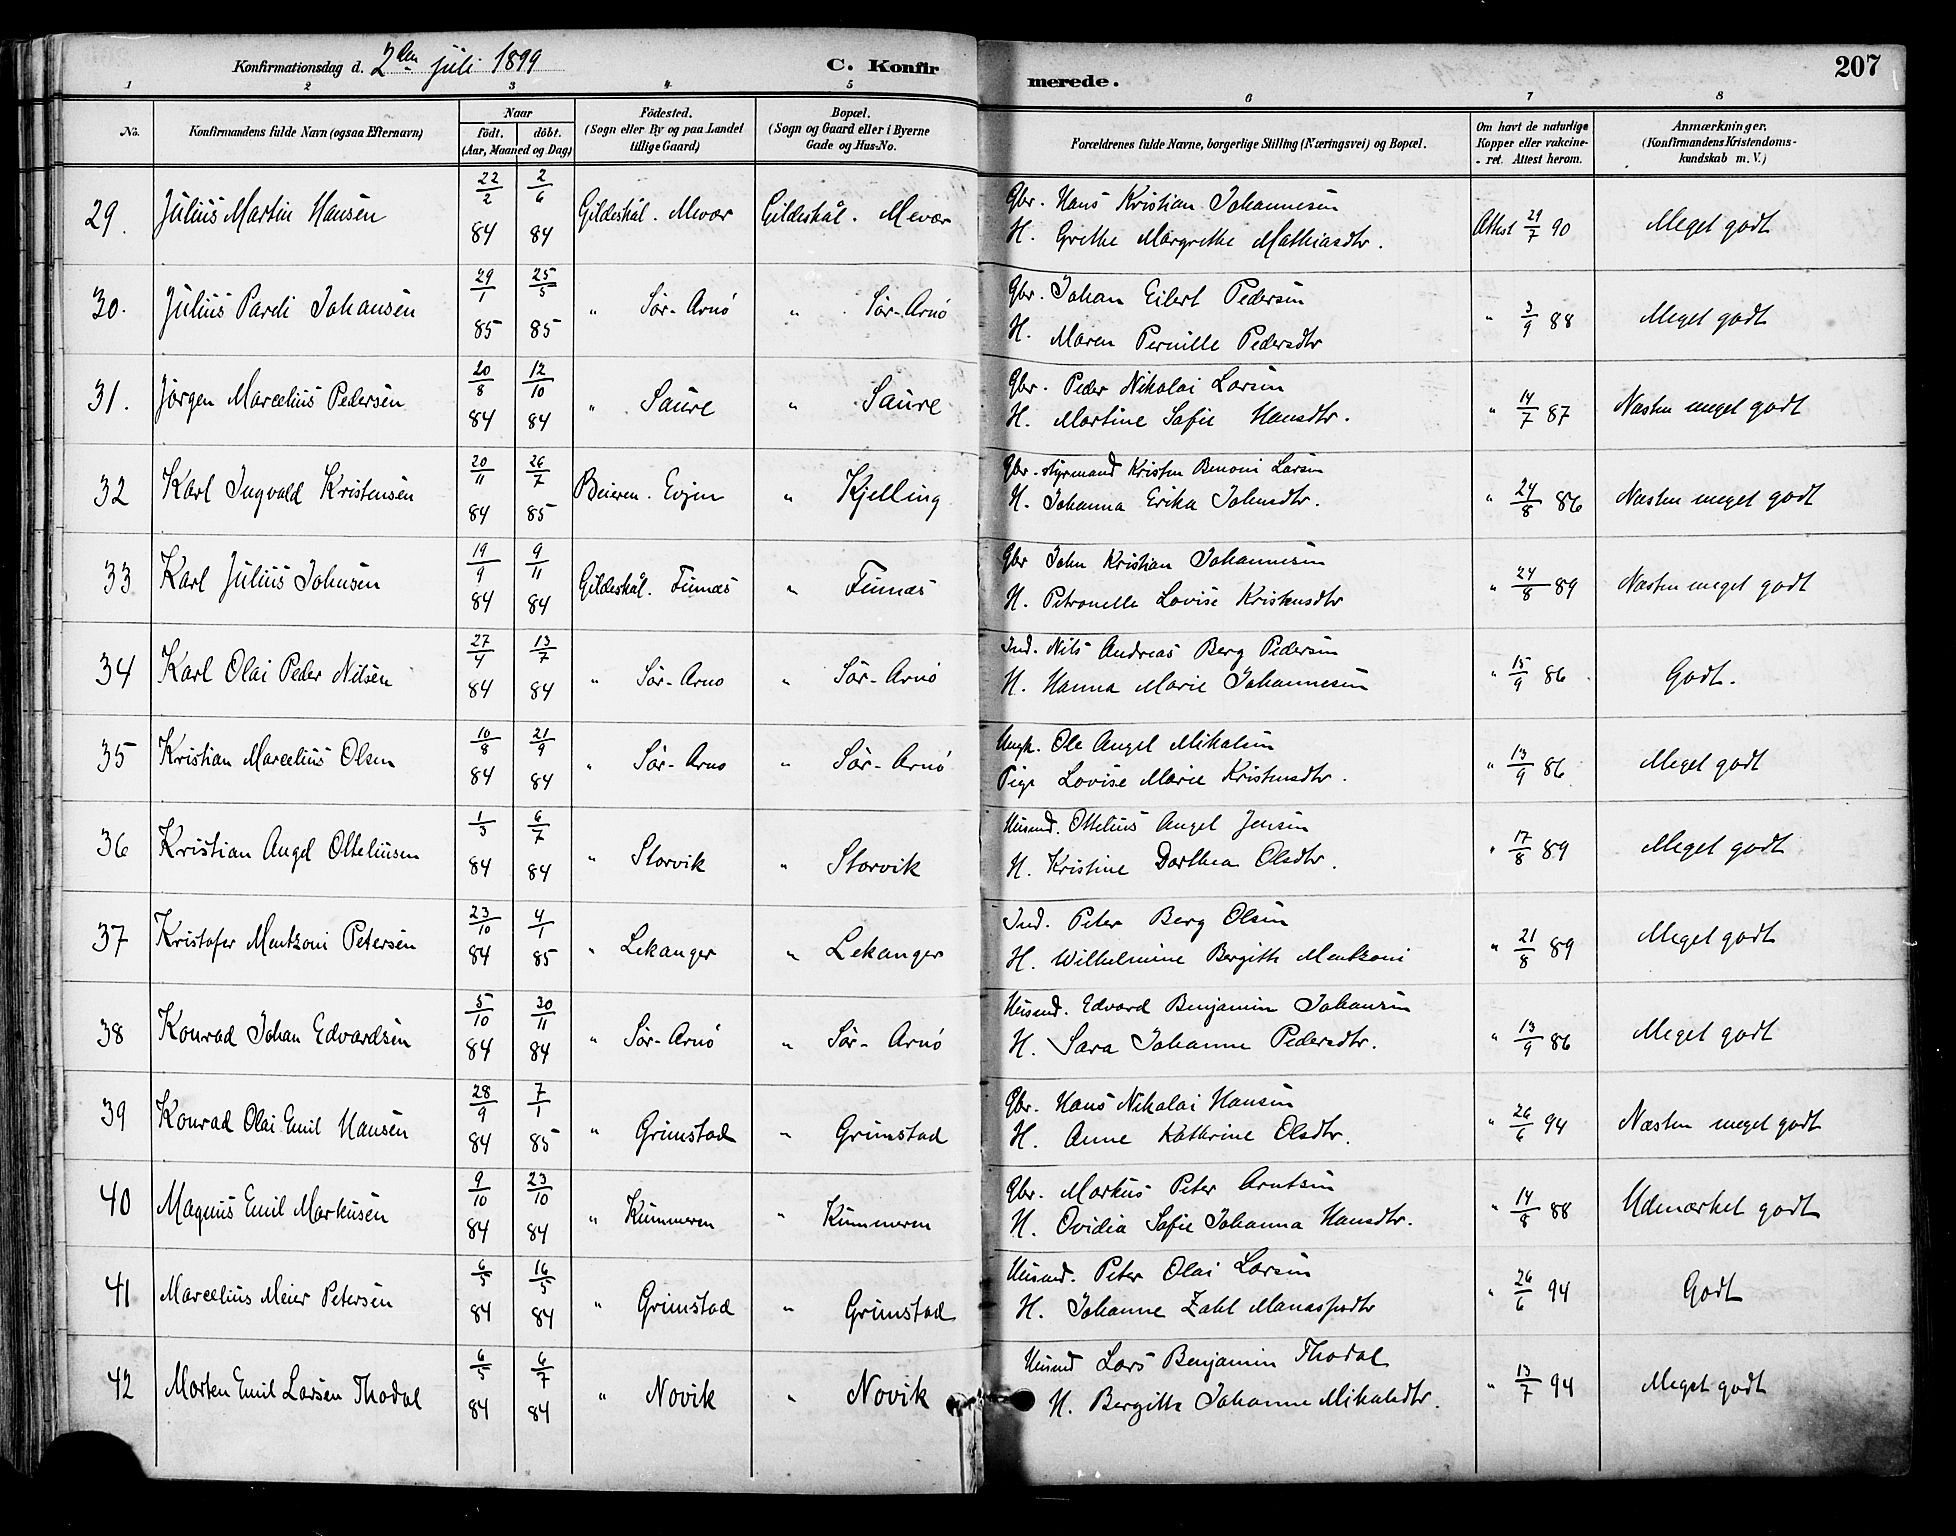 Konfirmationsdag d. 2den juli 1899
C. Konfirmerede.
207
1 2 3 4 5 6 7 8
No.
Konfirmandens fulde Navn (ogsaa Efternavn)
Naar
født. døbt.
(Aar, Maaned og Dag)
Födested.
(Sogn eller By og paa Landet
tillige Gaard)
Bopæl.
(Sogn og Gaard eller i Byerne
Gade og Hus-No.
Forældrenes fulde Navne, borgerlige Stilling (Næringsvei) og Bopæl.
Om havt de naturlige
Kopper eller vakcine-
ret. Attest herom.
Anmærkninger.
(Konfirmandens Kristendoms-
kundskab m. V.)
29. Julius Martin Hansen 22/2 84 2/6 84 Gildeskål. Mevær Gildeskål. Mevær Gbr. Hans Kristian Johannesen
H. Grethe Margrethe Mathiasdtr. Attest 29/7 90 Meget godt
30. Julius Pardi Johansen 29/1 85 25/5 85 " Sör-Arnö " Sör-Arnö Gbr. Johan Eilert Pedersen
H. Maren Pernille Pedersdtr " 3/9 88 Meget godt
31. Jørgen Marcelius Pedersen 20/8 84 12/10 84 " Saure " Saure Gbr. Peder Nikolai Larsen
H. Martine Sofie Hansdtr. " 14/7 87 Næsten meget godt
32 Karl Ingvald Kristensen 20/11 84 26/7 85 Beieren. Evjen " Kjelling Gbr. styrmand Kristen Benoni Larsen
H. Johanna Erika Johnsdtr. " 24/8 86 Næsten meget godt
33 Karl Julius Johnsen 19/9 84 9/11 84 Gildeskål. Finnæs " Finnæs Gbr John Kristian Johannesen
H. Petronelle Lovise Kristensdtr " 24/8 89 Næsten meget godt
34 Karl Olai Peder Nilsen 27/4 84 13/7 84 " Sör-Arnö " Sör-Arnö Ind. Nils Andreas Berg Pedersen
H. Hanna Marie Johannesen " 15/9 86 Godt.
35 Kristian Marcelius Olsen 10/8 84 21/9 84 " Sör-Arnö " Sör-Arnö Ungk. Ole Angel Mikalsen
Pige Lovise Marie Kristensdtr. " 13/9 86 Meget godt
36 Kristian Angel Otteliusen 1/3 84 6/7 84 " Storvik " Storvik Husmd. Ottelius Angel Jensen
H. Kristine Dorthea Olsdtr. " 17/8 89 Meget godt
37 Kristofer Mentzoni Petersen 23/10 84 4/1 85 " Lekanger " Lekanger Ind. Peter Berg Olsen
H. Wilhelmine Bergitte Mentzoni " 21/8 89 Meget godt
38 Konrad Johan Edvardsen 5/10 84 30/11 84 " Sör-Arnö " Sör-Arnö Husmd. Edvard Benjamin Johansen
H. Sara Johanne Pedersdtr. " 13/9 86 Meget godt
39 Konrad Olai Emil Hansen 28/9 84 7/1 85 " Grimstad " Grimstad Gbr. Hans Nikolai Hansen
H. Anne Kathrine Olsdtr. " 26/6 94 Næsten meget godt
40 Magnus Emil Markusen 9/10 84 23/10 84 " Kummeren " Kummeren Gbr. Markus Peter Arntsen
H. Ovidia Sofie Johanna Hansdtr. " 14/8 88 Udmærket godt
41 Marcelius Meier Petersen 6/5 84 16/5 84 " Grimstad " Grimstad Husmd. Peter Olai Larsen
H. Johanne Zahl " 26/6 94 Godt
42 Morten Emil Larsen Thodal 6/5 84 6/7 84 " Novik " Novik Husmd Lars Benjamin Thodal
H. Bergitte Johanne Mikalsdtr. " 13/7 94 Meget godt